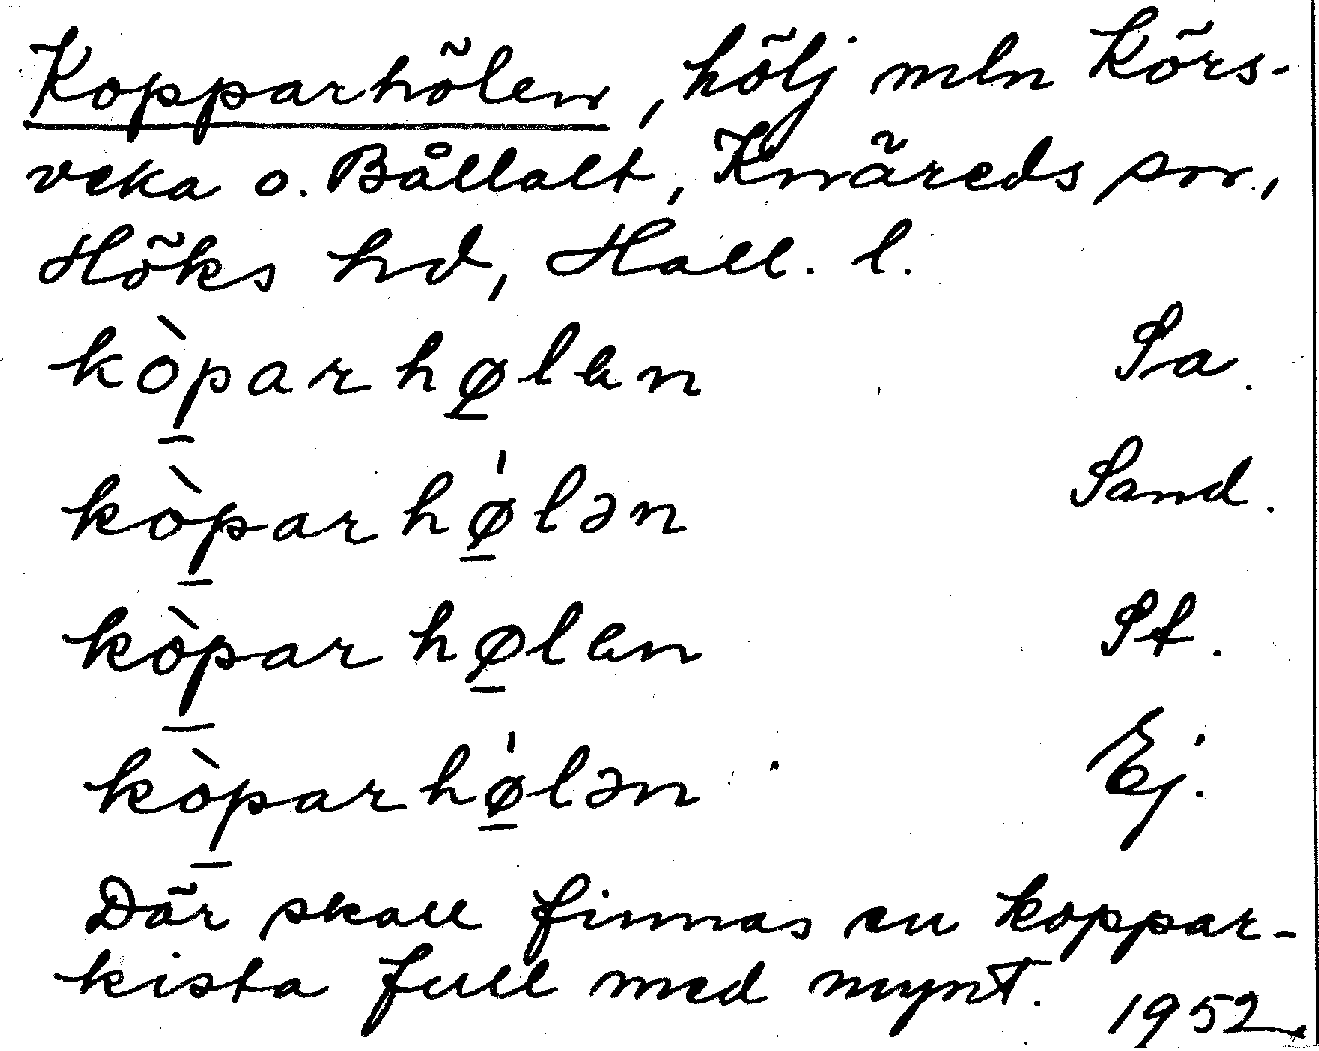 Kopparhölen, hölj mln Körs-
veka o. Bållalt, Knäreds sn,
Höks hd, Hall. l.
kòparhø̱len Sa.
kòparhǿ̱lən Sand.
kòparhø̱len St.
kòparhǿ̱lən Ej.
Där skall finnas en koppar-
kista full med mynt.
1952